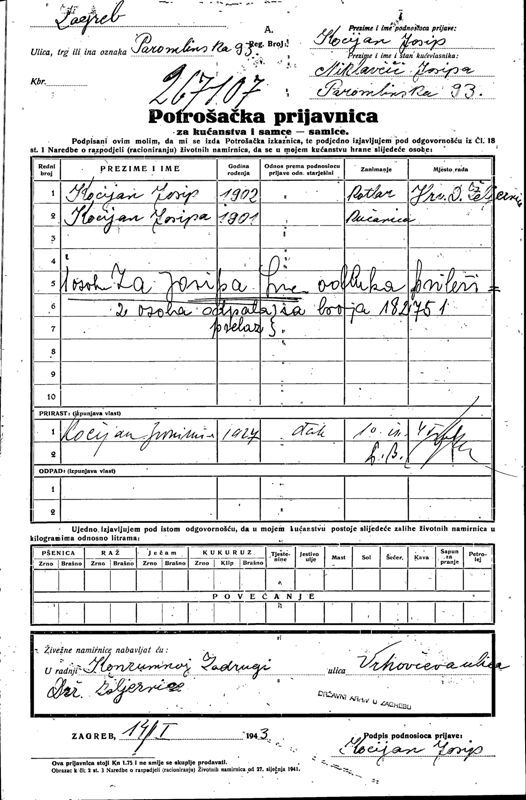 Zagreb
A.
Prezime i ime podnosioca prijave:
Kocijan Josip
Ulica, trg ili ina oznaka Paromlinska 93.
Reg. Broj:
Prezime i ime i stan kućevlasnika:
Niklavčić Josipa
Kbr.
267107
Paromlinska 93.
Potrošačka prijavnica
za kućanstva i samce – samice.
Podpisani ovim molim, da mi se izda Potrošačka izkaznica, te podjedno izjavljujem pod odgovornošću iz Čl. 18
st. 1 Naredbe o razpodjeli (racioniranju) životnih namirnica, da se u mojem kućanstvu hrane slijedeće osobe:
Redni broj
PREZIME I IME
Godina rođenja
Odnos prema podnosiocu prijave odn. starješini
Zanimanje
Mjesto rada
1 Kocijan Josip 1902 Kotlar Hrv. D. Željezni
2 Kocijan Josipa 1901 Kućanica
3
4
5 1 osob Za Josipa odluka prileži =
6 2 osoba odpataјa broja 182751
7 prelaz
8
9
10
PRIRAST: (izpunjava vlast)
1 Kocijan 1927 đak 10. in.
2
ODPAD: (izpunjava vlast)
1
2
Ujedno izjavljujem pod istom odgovornošću, da u mojem kućanstvu postoje slijedeće zalihe životnih namirnica u
kilogramima odnosno litrama:
PŠENICA RAŽ Ječam KUKURUZ Tjestenine Jestivo ulje Mast Sol Šećer. Kava Sapun za pranje Petrolej
Zrno Brašno Zrno Brašno Zrno Brašno Zrno Klip Brašno
POVEĆANJE
Živežne namirnice nabavljat ću:
U radnji Konzumnoj Zadrugi ulica Vrhovčeva ulica
Drž. Željeznice
DRŽAVNI ARHIV U ZAGREBU
ZAGREB, 14/I 1943
Podpis podnosioca prijave:
Kocijan Josip
Ova prijavnica stoji Kn 1.75 i ne smije se skuplje prodavati.
Obrazac k čl. 2 st. 3 Naredbe o razpodjeli (racioniranju) Životnih namirnica od 27. siječnja 1941.